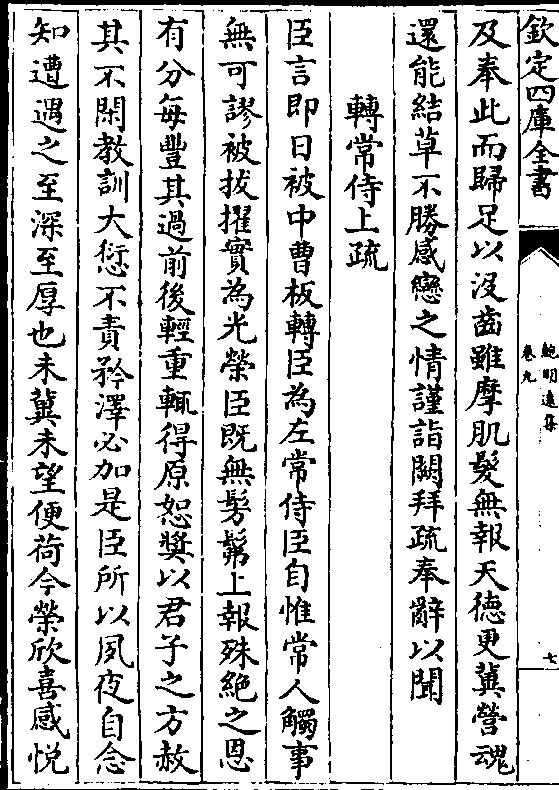 欽定四庫全書
鮑明遠集
卷九
七
及奉此而歸足以沒齒雖摩肌髮無報天德更冀營魂
還能結草不勝感戀之情謹詣闕拜疏奉辭以聞
轉常侍上疏
臣言即日被中曹板轉臣為左常侍臣自惟常人觸事
無可謬被拔擢實為光榮臣既無髣髴上報殊絕之恩
有分每豐其過前後輕重輒得原恕奬以君子之方赦
其不閑教訓大愆不責矜澤必加是臣所以夙夜自念
知遭遇之至深至厚也未冀未望便荷今榮欣喜感悅